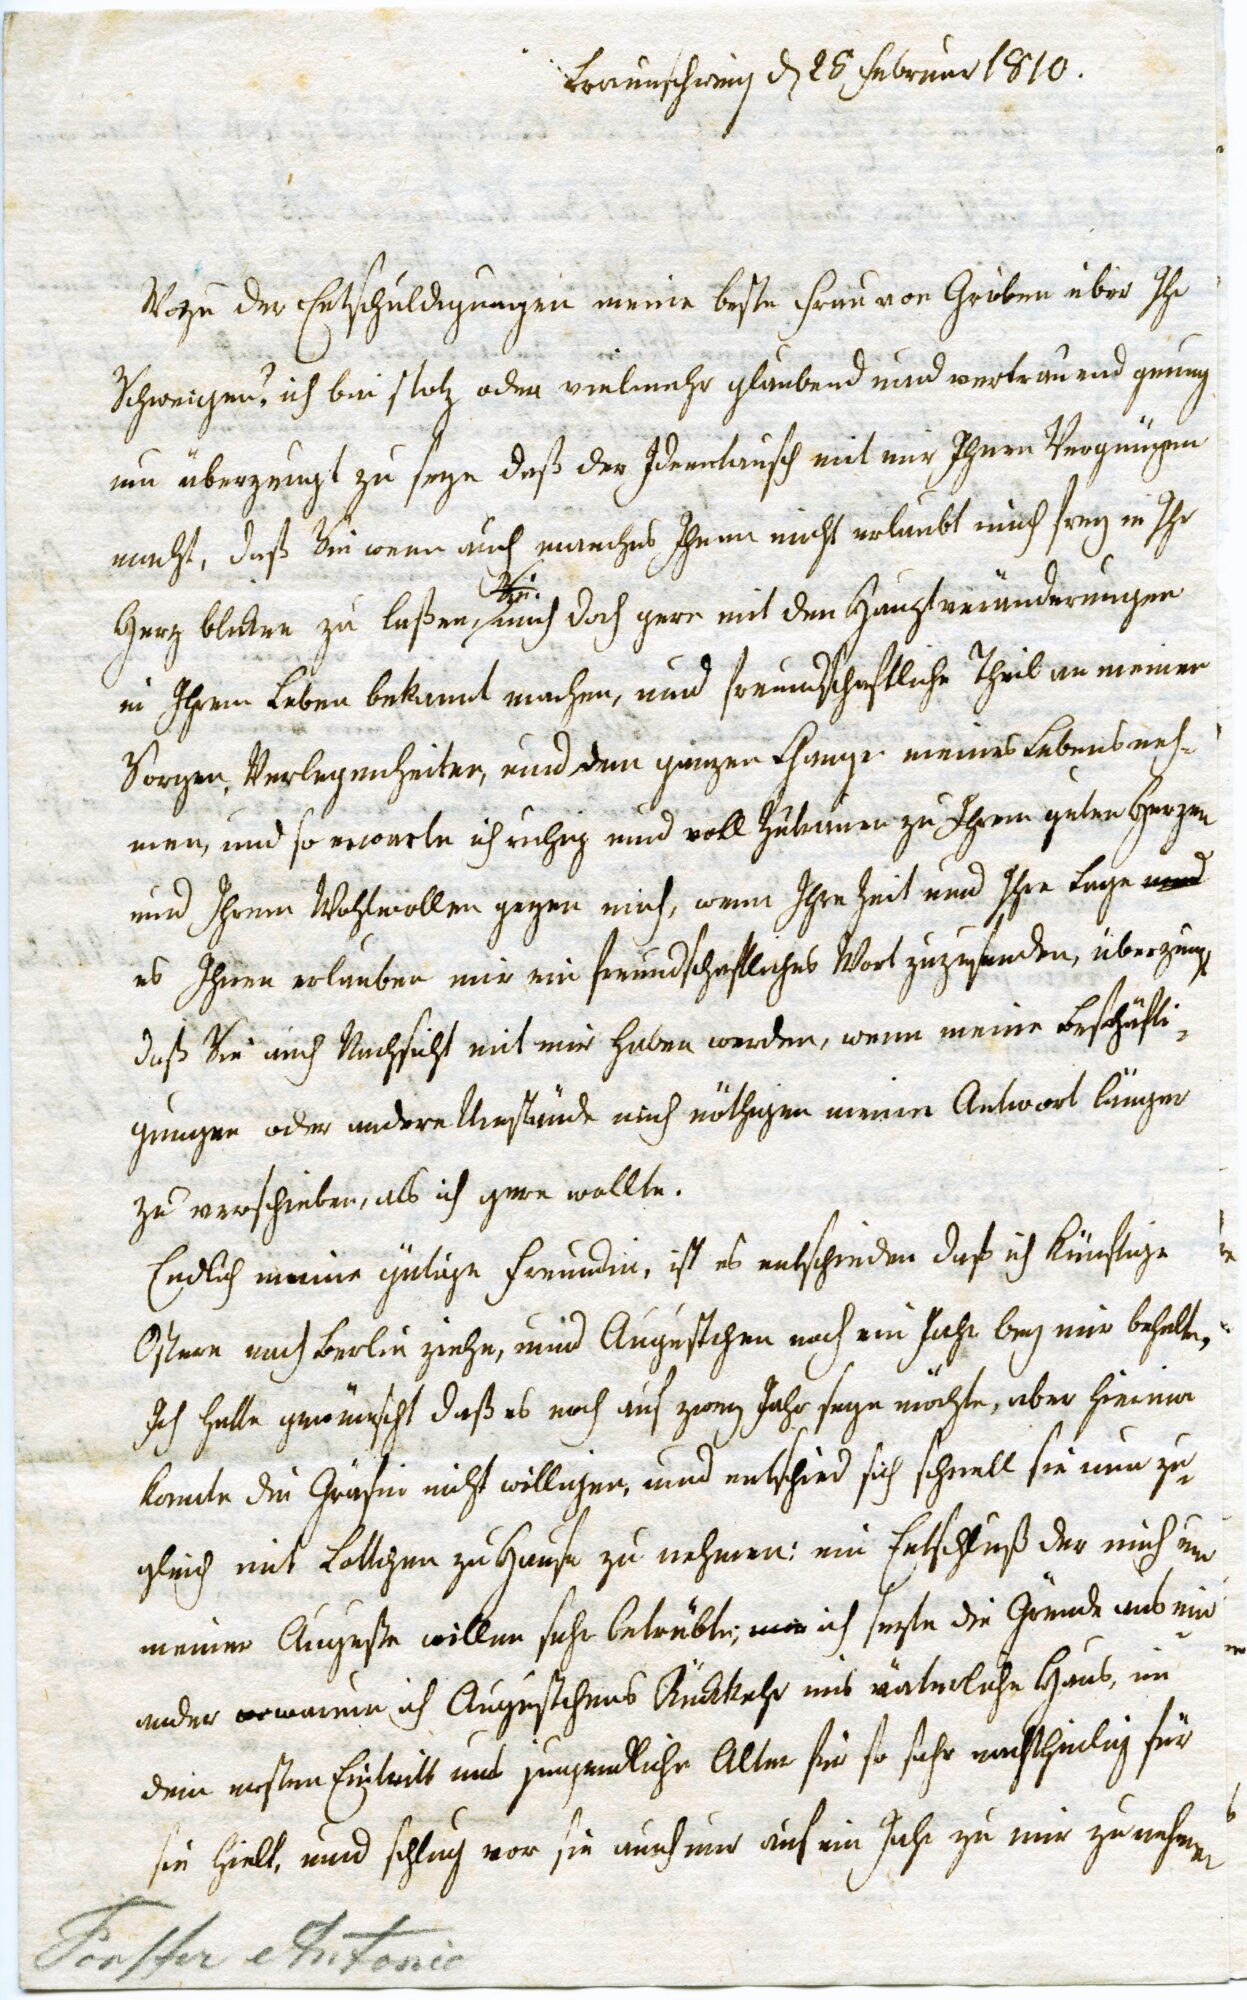 Braunschweig d 28 Februar 1810.
Wozu der Entschuldigungen meine beste Frau von Gröben über Ihr
Schweigen? ich bin stolz oder vielmehr glaubend und vertrauend genug
um überzeugt zu seyn daß der Ideentausch mit mir Ihnen Vergnügen
macht, daß Sie wenn auch manches Ihnen nicht erlaubt mich frey in Ihr
Herz blicken zu laßen, Sie mich doch gern mit den Hauptveränderungen
in Ihrem Leben bekannt machen, und freundschaftliche Theil an meinen
Sorgen, Verlegenheiten, und dem ganzen Gange meines Lebens neh-
men, und so erwarte ich ruhig und voll Zutrauen zu Ihrem guten Herzen
und Ihrem Wohlwollen gegen mich, wenn Ihre Zeit und Ihre Lage und
es Ihnen erlauben mir ein freundschaftliches Wort zuzusenden, überzeugt
daß Sie auch Nachsicht mit mir haben werden, wenn meine Beschäfti-
gungen oder andere Umstände mich nöthigen meine Antwort länger
zu verschieben, als ich gern wollte.
Endlich meine gütige Freundin, ist es entschieden daß ich künftige
Ostern nach Berlin ziehe, und Augustchen noch ein Jahr bey mir behalte,
Ich hatte gewünscht daß es noch auf zwey Jahr seyn möchte, aber hierin
konnte die Gräfin nicht willigen, und entschied sich schnell sie nun zu-
gleich mit Lottchen zu Hause zu nehmen: ein Entschluß der mich um
meiner Auguste willen sehr betrübte; ich sezte die Gründe aus ein
ander warum ich Augustchens Rückkehr ins väterliche Haus, in
dem ersten Eintritt ins jugendliche Alter für so sehr nachtheilig für
sie hielt, und schlug vor sie auch nur auf ein Jahr zu mir zu nehmen
Forster Antonie